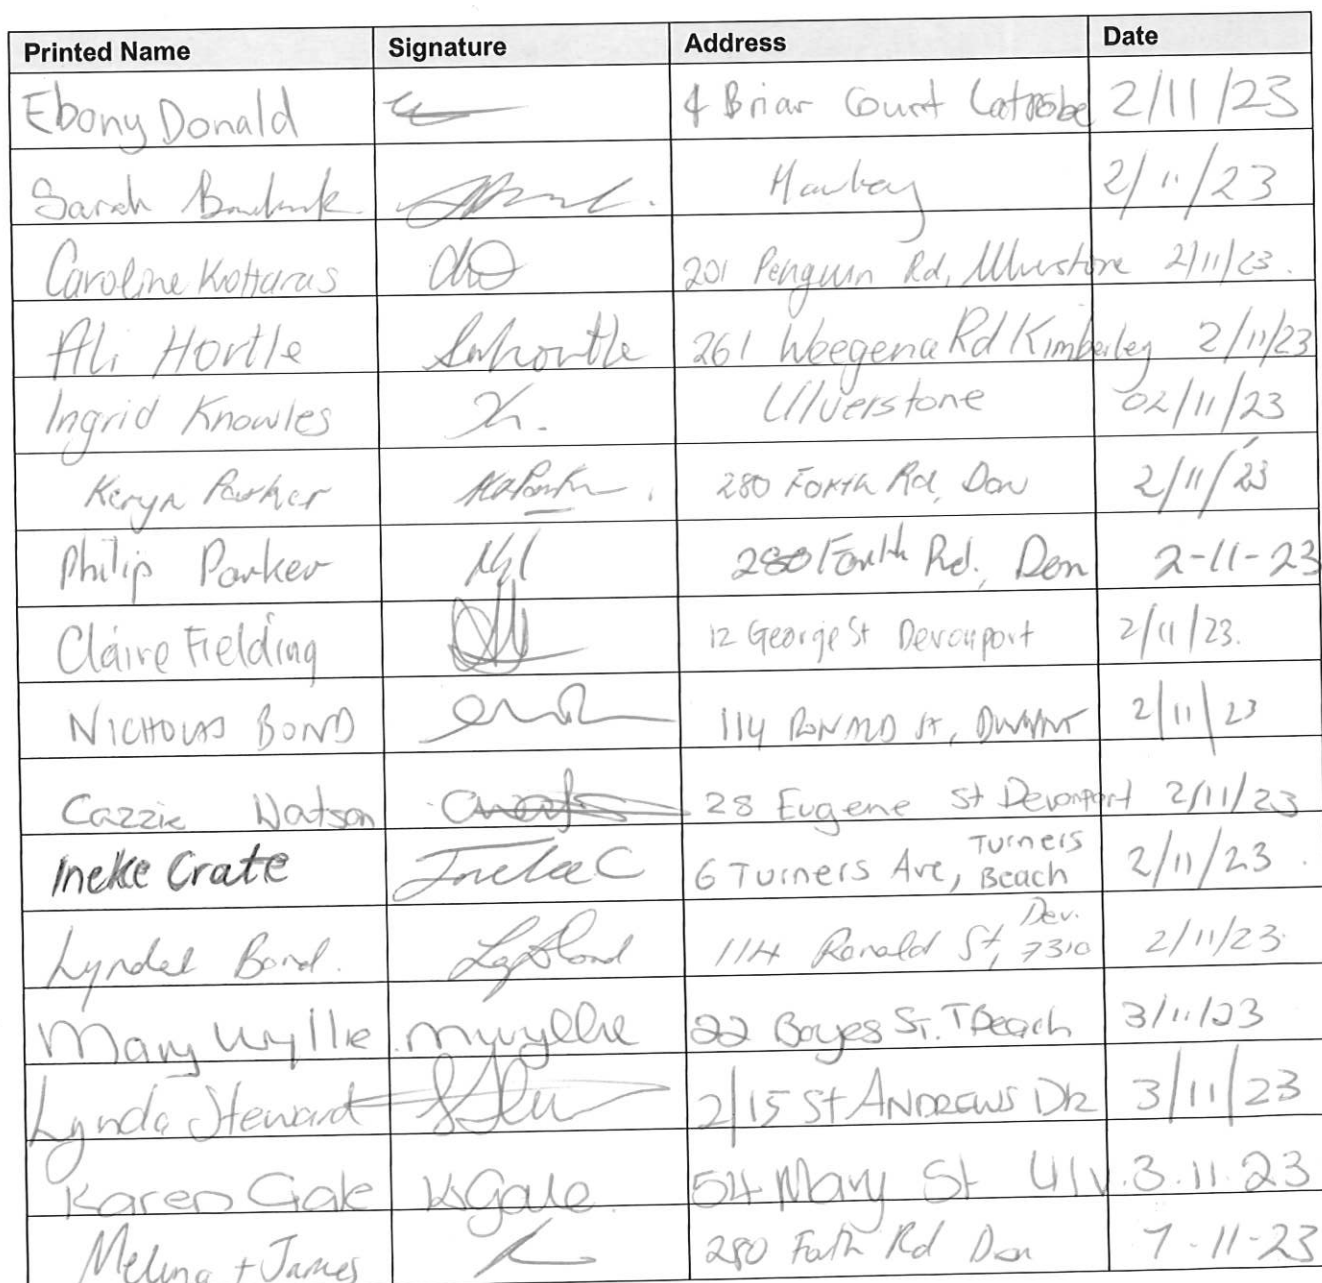 Printed Name Signature Address Date
Ebony Donald 4 Briar Court Latrobe 2/11/23
Sarah 2/11/23
Caroline Kottaras 201 Penguin Rd, Ulverstone 2/11/23.
Ali Hortle Snhortle 261 Weegena Rd Kimberley 2/11/23
Ingrid Knowles Ulverstone 02/11/23
Keryn Parker 280 Forth Rd, Don 2/11/23
Philip Parker 280 Forth Rd., Don 2-11-23
Claire Fielding 12 George St Devonport 2/11/23.
NICHOLAS BOND 114 RONALD St, 2/11/23
Cazzie Watson 28 Eugene St Devonport 2/11/23
Ineke Crate Ineke C 6 Turners Ave, Turners Beach 2/11/23.
Lyndel Bond. 114 Ronald St, Dev. 7310 2/11/23
Mary Wyllie mwyllie 22 Boyes St. T Beach 3/11/23
Lynda Steward 2/15 St ANDREWS DR 3/11/23
Karen Gale KGale 54 Mary St Ulv. 3.11.23
+ James 280 Forth Rd Don 7-11-23